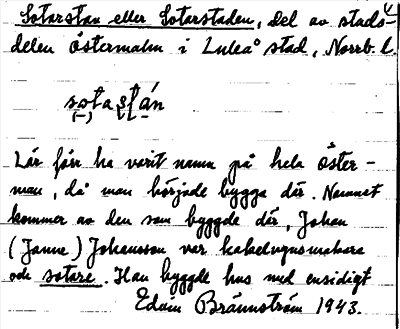 Sotarstan eller Sotarstaden, Del av stads-
delen Östermalm i Luleå stad, Norrb. l.
sotastán
Lär förr ha varit namn på hela Öster-
malm, då man började bygga där. Namnet
kommer av den som byggde där, Johan
(Janne) Johansson var kakelugnsmakare
och sotare. Han byggde hus med ensidigt
Edvin Brännström 1943.